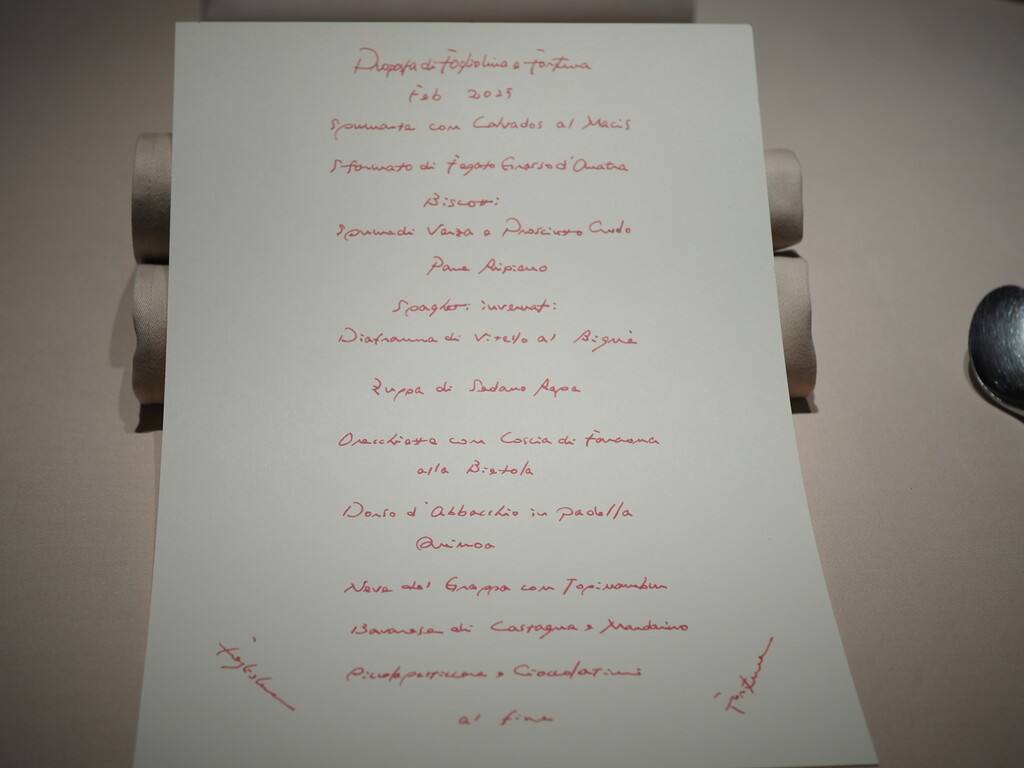 Proposta di Fogliolina e Fortuna
Feb 2025
Spumante con Calvados al Macis
Sformato di Fegato Grasso d'Anatra
Biscotti
Spuma di Verza e Prosciutto Crudo
Pane Ripieno
Spaghetti invernali
Diaframma di Vitello al Bignè
Zuppa di Sedano Rapa
Orecchiette con Coscia di Faraona
alla Bietola
Dorso d'Abbacchio in padella
Quinoa
Neve del Grappa con Topinambur
Bavarese di Castagna e Mandarino
Piccola pasticcera e Cioccolatini
al fine
Fogliolina
Fortuna